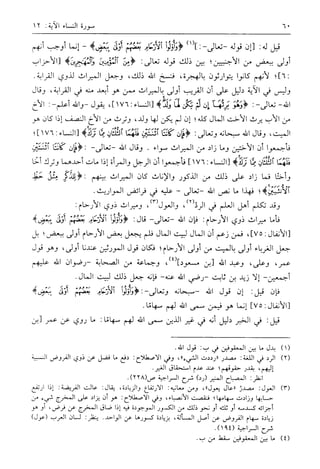 ٦٠ سورة النساء الآية: ١٢
قيل له: [إن قوله -تعالى-:](١) ﴿وَأُوْلُوا۟ ٱلْأَرْحَامِ بَعْضُهُمْ أَوْلَىٰ بِبَعْضٍ﴾ - إنما أوجب أنهم
أولى ببعض من الأجنبيين؛ بين ذلك قوله تعالى: ﴿مِنَ ٱلْمُؤْمِنِينَ وَٱلْمُهَٰجِرِينَ﴾ [الأحزاب
: ٦]؛ لأنهم كانوا يتوارثون بالهجرة، فنسخ الله ذلك، وجعل الميراث لذوي القرابة.
وليس في الآية دليل على أن القريب أولى بالميراث ممن هو أبعد منه في القرابة، وقال
الله- تعالى-: ﴿وَهُوَ يَرِثُهَآ إِن لَّمْ يَكُن لَّهَا وَلَدٌ﴾ [النساء: ١٧٦]، يقول -والله أعلم-: الأخ
من الأب يرث الأخت المال كله؛ إن لم يكن لها ولد، وترث من الأخ النصف إذا كان هو
الميت، وقال الله سبحانه وتعالى: ﴿فَإِن كَانَتَا ٱثْنَتَيْنِ فَلَهُمَا ٱلثُّلُثَانِ مِمَّا تَرَكَ﴾ [النساء: ١٧٦]؛
فأجمعوا أن الأختين وما زاد من الميراث سواء. وقال الله -تعالى-: ﴿فَإِن كَانَتَا ٱثْنَتَيْنِ
فَلَهُمَا ٱلثُّلُثَانِ مِمَّا تَرَكَ﴾ [النساء: ١٧٦] فأجمعوا أن الرجل والمرأة إذا مات أحدهما وترك أخا
وأختا فما زاد على ذلك من الذكور والإناث كان الميراث بينهم: ﴿لِلذَّكَرِ مِثْلُ حَظِّ
ٱلْأُنثَيَيْنِ﴾؛ فهذا ما نص الله -تعالى - عليه في فرائض المواريث.
وقد تكلم أهل العلم في الرد(٢)، والعول(٣)، وميراث ذوي الأرحام:
فأما ميراث ذوي الأرحام: فإن الله -تعالى- قال: ﴿وَأُوْلُوا۟ ٱلْأَرْحَامِ بَعْضُهُمْ أَوْلَىٰ بِبَعْضٍ﴾
[الأنفال: ٧٥]، فمن زعم أن المال لبيت المال فلم يجعل بعض الأرحام أولى ببعض؛ بل
جعل الغرباء أولى بالميت من أولى الأرحام؛ فكان قول المورثين عندنا أولى، وهو قول
عمر، وعلي، وعبد الله [بن مسعود](٤)، وجماعة من الصحابة -رضوان الله عليهم
أجمعين- إلا زيد بن ثابت -رضي الله عنه - فإنه جعل ذلك لبيت المال.
فإن قيل: إن قول الله -سبحانه وتعالى-: ﴿وَأُوْلُوا۟ ٱلْأَرْحَامِ بَعْضُهُمْ أَوْلَىٰ بِبَعْضٍ﴾
[الأنفال: ٧٥] إنما هو فيمن سمى الله لهم سهامًا.
قيل: في الخبر دليل أنه في غير الذين سمى الله لهم سهامًا: ما روي عن عمر [بن
(١) بدل ما بين المعقوفين في ب: قول الله.
(٢) الرد في اللغة: مصدر «رددت الشيء»، وفي الاصطلاح: دفع ما فضل عن ذوي الفروض النسبية
إليهم، بقدر حقوقهم؛ عند عدم استحقاق الغير.
انظر: المصباح المنير (رد) شرح السراجية ص(٢٣٨).
(٣) العول: مصدر «عال يعول»، ومن معانيه: الارتفاع والزيادة، يقال: عالت الفريضة: إذا ارتفع
حسابها وزادت سهامها؛ فنقصت الأنصباء، وفي الاصطلاح: هو أن يزاد على المخرج شيء من
أجزائه كسدسه أو ثلثه أو نحو ذلك من الكسور الموجودة فيه إذا ضاق المخرج عن فرض، أو هو
زيادة سهام الفروض عن أصل المسألة، بزيادة كسورها عن الواحد. ينظر: لسان العرب (عول)
شرح السراجية (١٩٤).
(٤) ما بين المعقوفين سقط من ب.